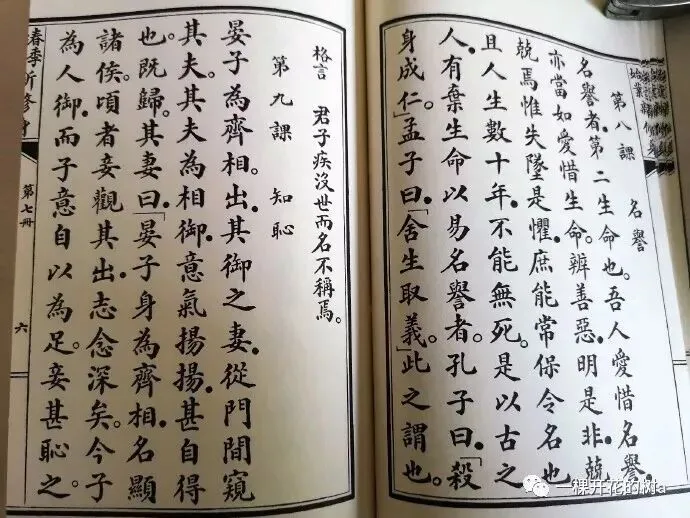 第八課　名譽
名譽者。第二生命也。吾人愛惜名譽。
亦當如愛惜生命。辨善惡。明是非。兢
兢焉惟失墜是懼。庶能常保令名也
且人生數十年。不能無死。是以古之
人。有棄生命以易名譽者。孔子曰。「殺
身成仁。」孟子曰。「舍生取義。」此之謂也。
格言　君子疾沒世而名不稱焉。
第九課　知恥
晏子為齊相。出。其御之妻。從門間窺
其夫。其夫為相御。意氣揚揚。甚自得
也。既歸。其妻曰。「晏子身為齊相。名顯
諸侯。頃者妾觀其出。志念深矣。今子
為人御。而子意自以為足。妾甚恥之。
春季新修身
第七冊
六
一棵开花的树a